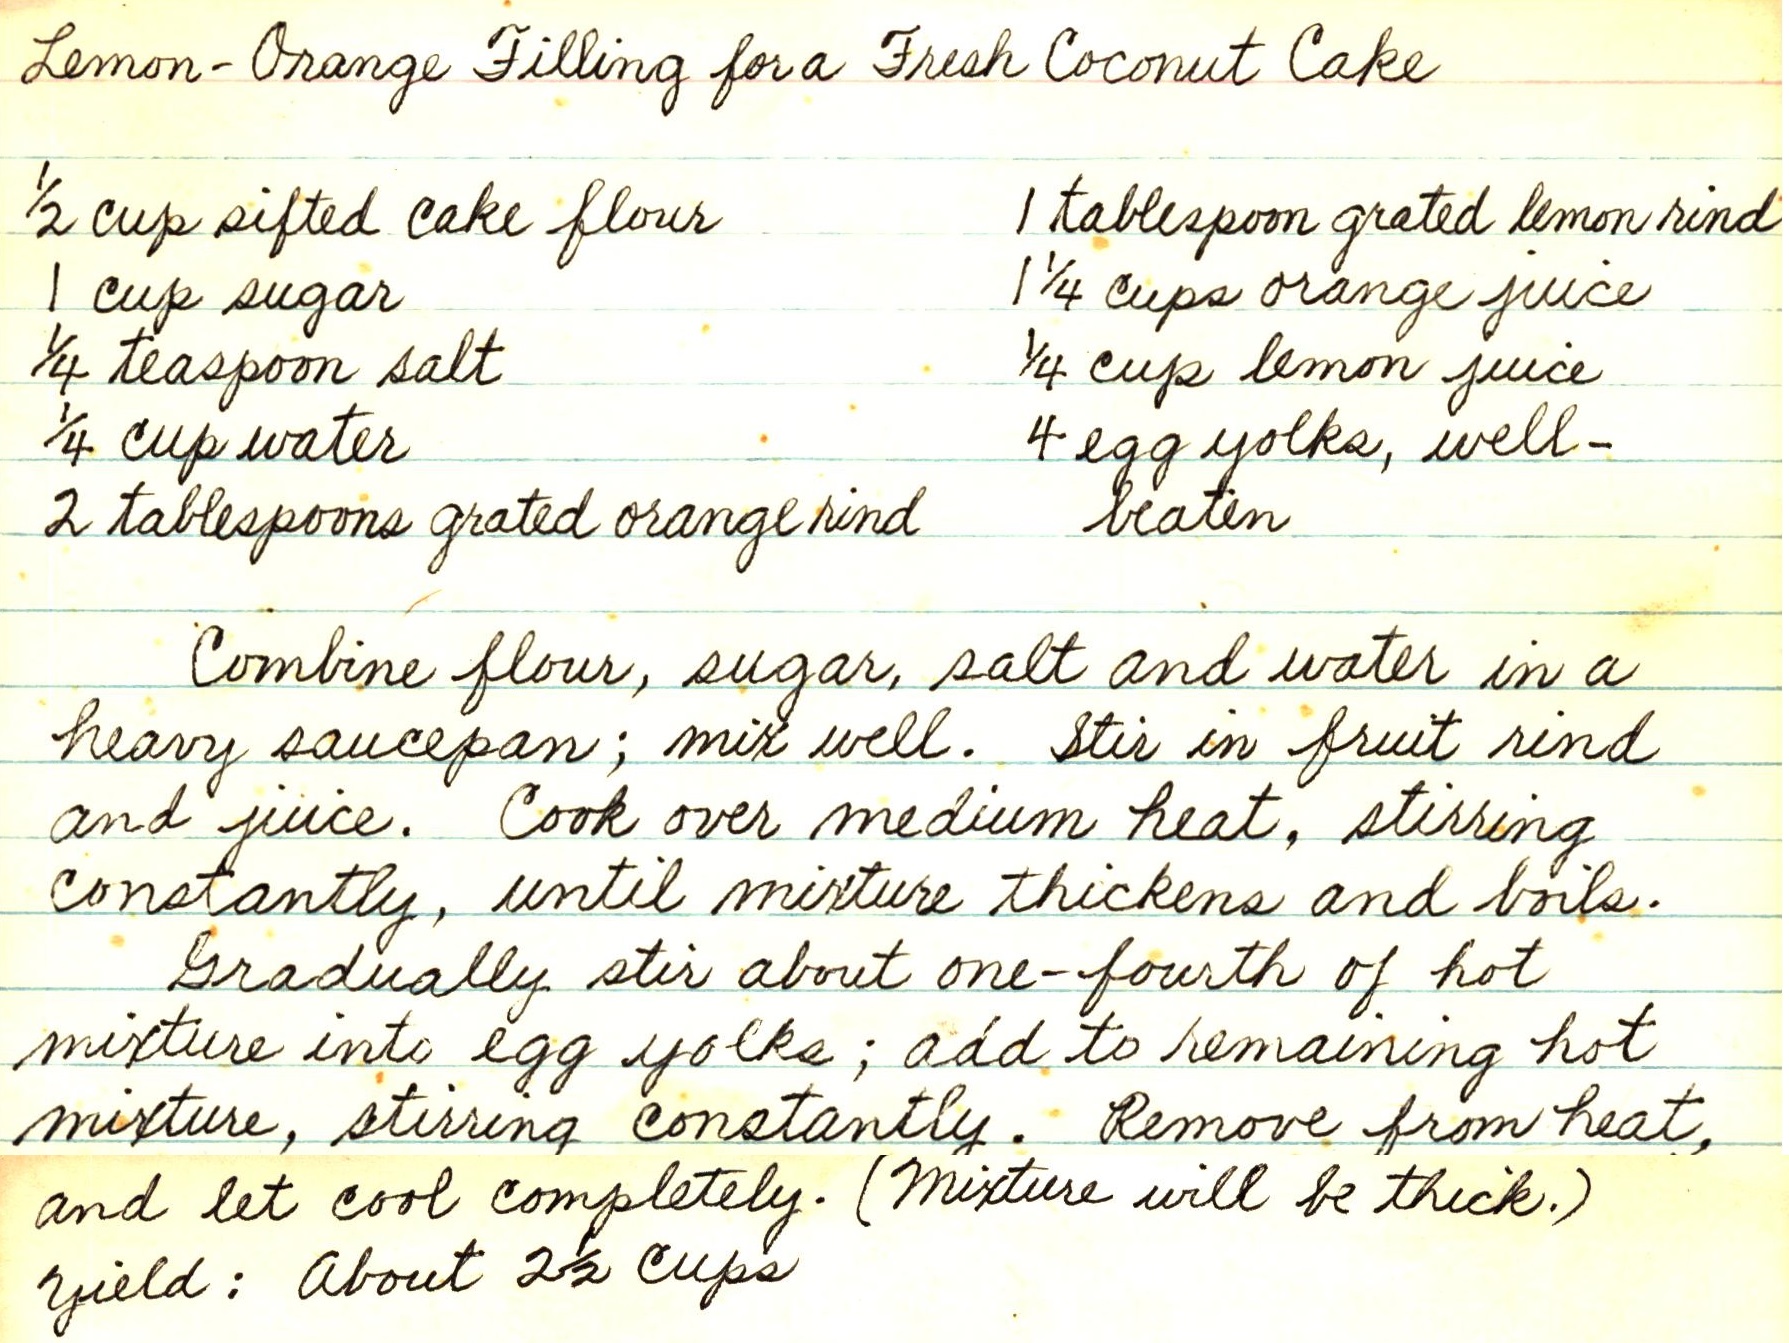 Lemon-Orange Filling for a Fresh Coconut Cake
1/2 cup sifted cake flour
1 cup sugar
1/4 teaspoon salt
1/4 cup water
2 tablespoons grated orange rind
1 tablespoon grated lemon rind
1 1/4 cups orange juice
1/4 cup lemon juice
4 egg yolks, well-
beaten
Combine flour, sugar, salt and water in a
heavy saucepan; mix well. Stir in fruit rind
and juice. Cook over medium heat, stirring
constantly, until mixture thickens and boils.
Gradually stir about one-fourth of hot
mixture into egg yolks; add to remaining hot
mixture, stirring constantly. Remove from heat,
and let cool completely. (Mixture will be thick.)
Yield: About 2 1/2 cups